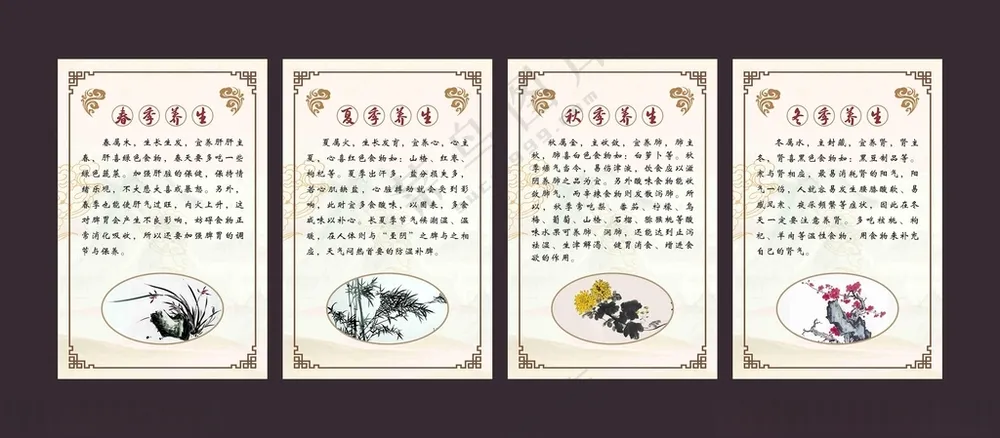 春季养生
春属木，生长生发，宜养肝肝主
春、肝喜绿色食物，春天要多吃一些
绿色蔬菜。加强肝脏的保健，保持情
绪乐观，不大悲大喜或暴怒。另外，
春季也能使肝气过旺，内火上升，这
对脾胃会产生不良影响，妨碍食物正
常消化吸收，所以还要加强脾胃的调
节与保养。
夏季养生
夏属火，生长发育，宜养心，心主
夏、心喜红色食物如：山楂、红枣、
枸杞等。夏季出汗多，盐分损失多，
若心肌缺盐，心脏搏动就会受到影
响，此时宜多食酸味，以固表，多食
咸味以补心。长夏季节气候潮温、温
暖，在人体则与“至阴”之脾与之相
应，天气闷热首要的防温补脾。
秋季养生
秋属金，主收敛，宜养肺，肺主
秋，肺喜白色食物如：白萝卜等。秋
季燥气当今，易伤津液，饮食应以滋
阴养肺之品为宜。另外酸味食物能收
敛肺气，而辛辣食物则发散泻肺。所
以，秋季常吃梨、番茄、柠檬、乌
梅、葡萄、山楂、石榴、猕猴桃等酸
味水果可养肺、润肺，还能达到止泻
祛温、生津解渴、健胃消食、增进食
欲的作用。
冬季养生
冬属水，主封藏，宜养肾，肾主
冬、肾喜黑色食物如：黑豆制品等。
末与肾相应，最易消耗肾的阳气，阳
气一伤，人就容易发生腰膝酸软、易
感风末，夜尿频繁等症状，因此在冬
天一定要注意养肾。多吃核桃、枸
杞、羊肉等温性食物，用食物来补充
自己的肾气。